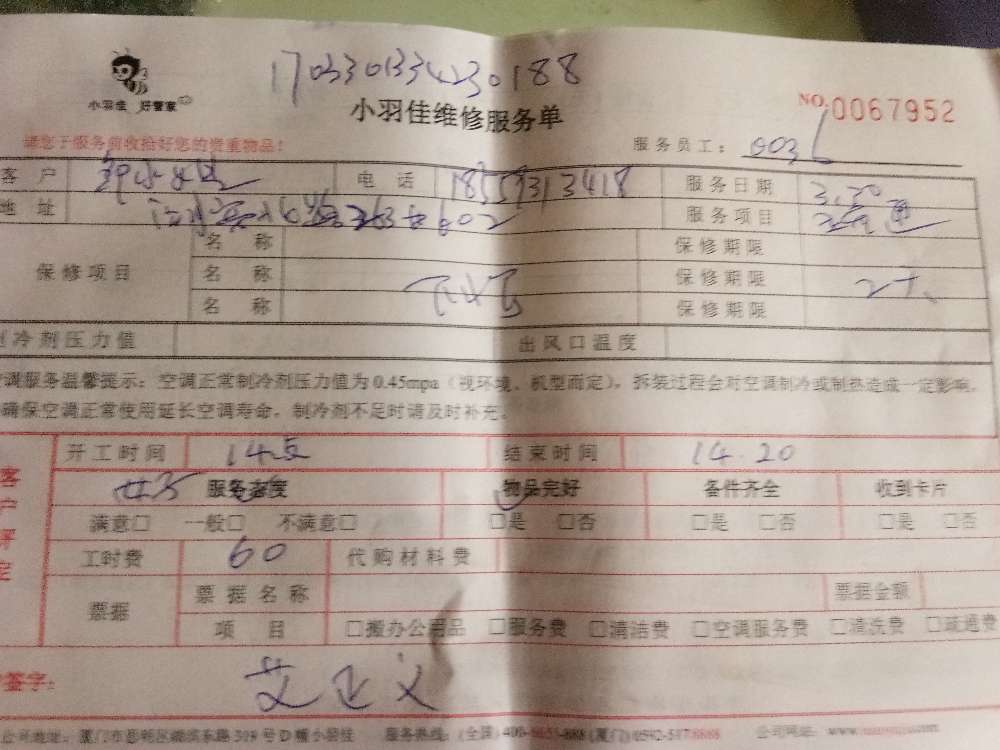 1703301334230188
小羽佳 好管家
小羽佳维修服务单
NO.0067952
请您于服务前收拾好您的贵重物品！
服务员工：
客 户 电 话 18559313418 服务日期 3.20
地 址 602 服务项目
保修项目
名 称 保修期限
名 称 下水 保修期限 2天
名 称 保修期限
制冷剂压力值 出风口温度
空调服务温馨提示：空调正常制冷剂压力值为0.45mpa（视环境、机型而定），拆装过程会对空调制冷或制热造成一定影响，
确保空调正常使用延长空调寿命，制冷剂不足时请及时补充。
客户评定
开工时间 14点 结束时间 14.20
服务态度 物品完好 备件齐全 收到卡片
满意□ 一般□ 不满意□ □是 □否 □是 □否 □是 □否
工时费 60 代购材料费
票据 票据名称 票据金额
项 目 □搬办公用品 □服务费 □清洁费 □空调服务费 □清洗费 □疏通费
签字： 艾正义
公司地址：厦门市 D幢小羽佳 服务热线：(全国)400- (厦门)0592- 公司网站：www.